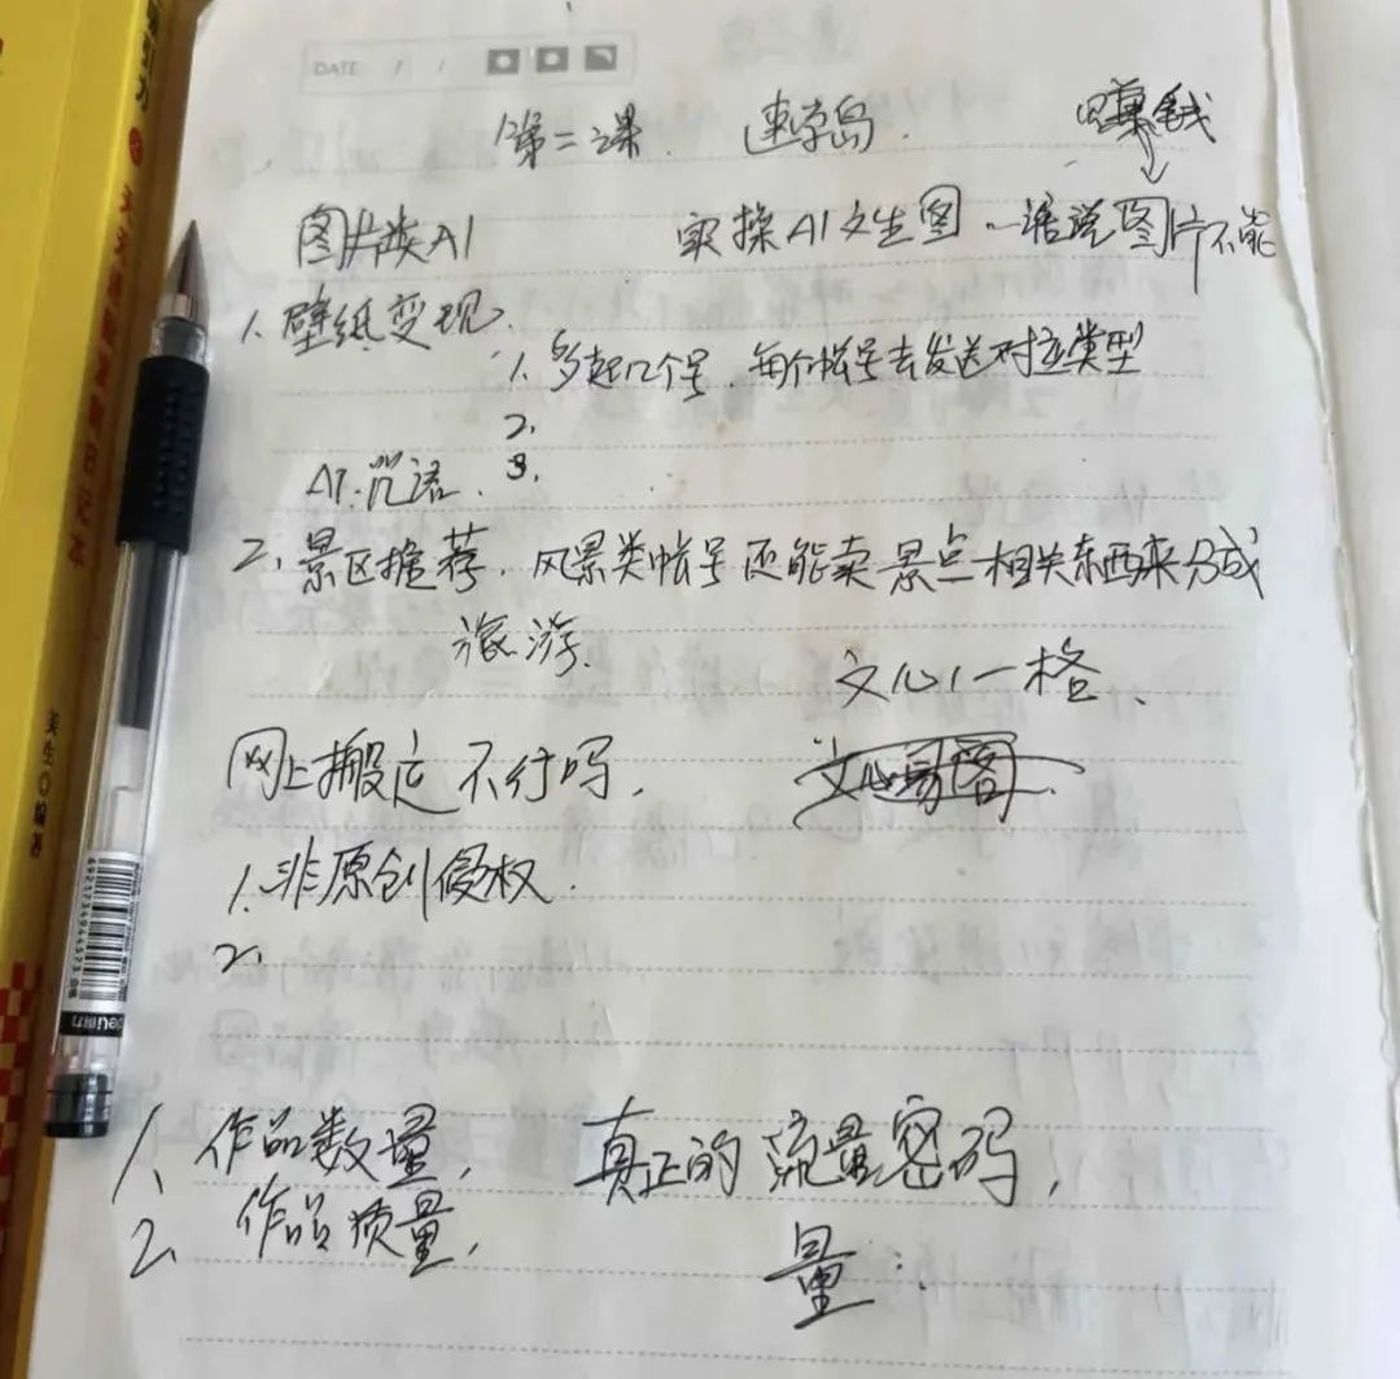 DATE / /
第二课 速学岛. 赚钱
图片类AI 实操AI文生图 一语说图片不能
1. 壁纸变现.
1. 多起几个号, 每个帐号去发送对应类型
2.
AI.咒语. 3.
2. 景区推荐. 风景类帐号还能卖景点相关东西来分成
旅游.
文心一格.
网上搬运不行吗. 文心易阁.
1. 非原创侵权.
2.
1. 作品数量, 真正的流量密码,
2. 作品质量, 量:
美生◎编著
deli得力
6921734944573